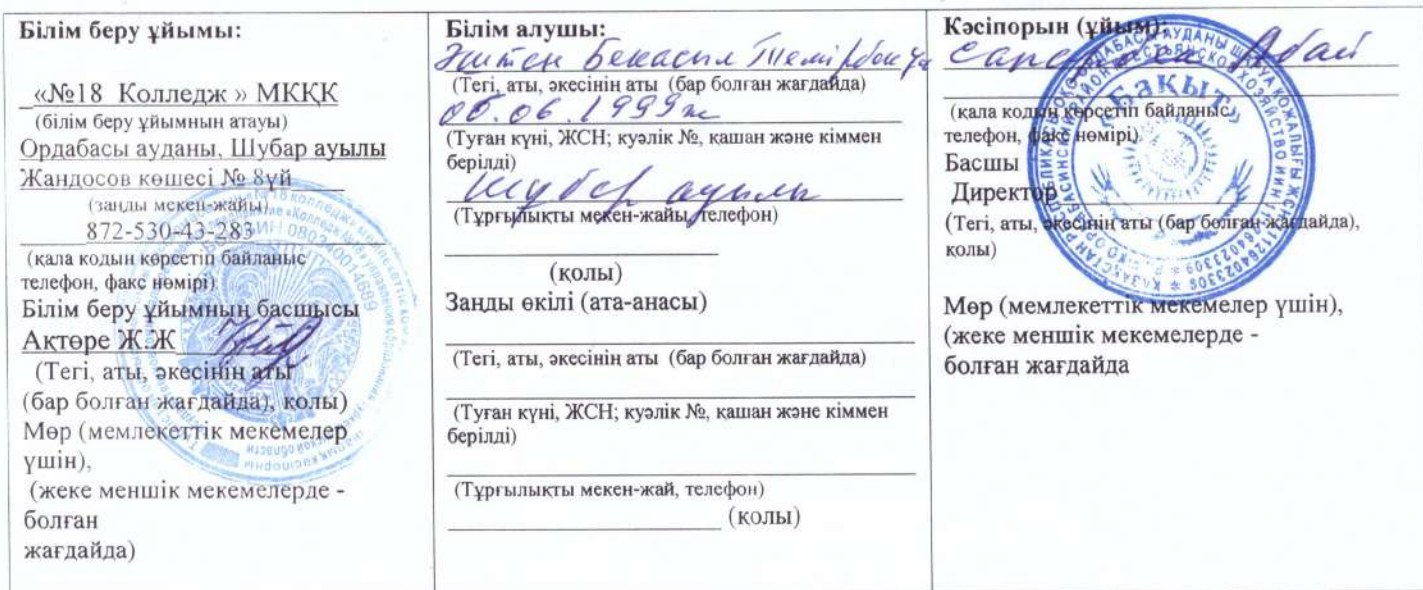 Білім беру ұйымы:
«№18 Колледж » МКҚК
(білім беру ұйымның атауы)
Ордабасы ауданы, Шубар ауылы
Жандосов көшесі № 8үй
(заңды мекен-жайы)
872-530-43-283
(қала кодын көрсетіп байланыс
телефон, факс нөмірі)
Білім беру ұйымның басшысы
Ақтөре Ж.Ж
(Тегі, аты, әкесінің аты
(бар болған жағдайда), қолы)
Мөр (мемлекеттік мекемелер
үшін),
(жеке меншік мекемелерде -
болған
жағдайда)
Білім алушы:
Бекасыл
(Тегі, аты, әкесінің аты (бар болған жағдайда)
06.1999ж
(Туған күні, ЖСН; куәлік №, қашан және кіммен
берілді)
Шубар ауылы
(Тұрғылықты мекен-жайы, телефон)
(қолы)
Заңды өкілі (ата-анасы)
(Тегі, аты, әкесінің аты (бар болған жағдайда)
(Туған күні, ЖСН; куәлік №, қашан және кіммен
берілді)
(Тұрғылықты мекен-жай, телефон)
(қолы)
Кәсіпорын (ұйым):
Абай
(қала кодын көрсетіп байланыс
телефон, факс нөмірі)
Басшы
Директор
(Тегі, аты, әкесінің аты (бар болған жағдайда),
қолы)
«Бақыт»
Мөр (мемлекеттік мекемелер үшін),
(жеке меншік мекемелерде -
болған жағдайда